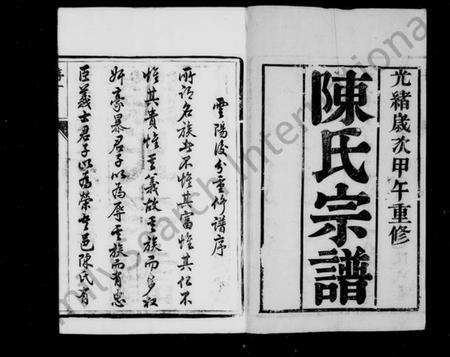 光緒歲次甲午重修
陳氏宗譜
雲陽後分重修譜序
所謂名族者不惟其富惟其仁不
惟其貴惟其義故其族而多奴
奸豪暴君子以為辱其族而有忠
臣義士君子以為榮吾邑陳氏有